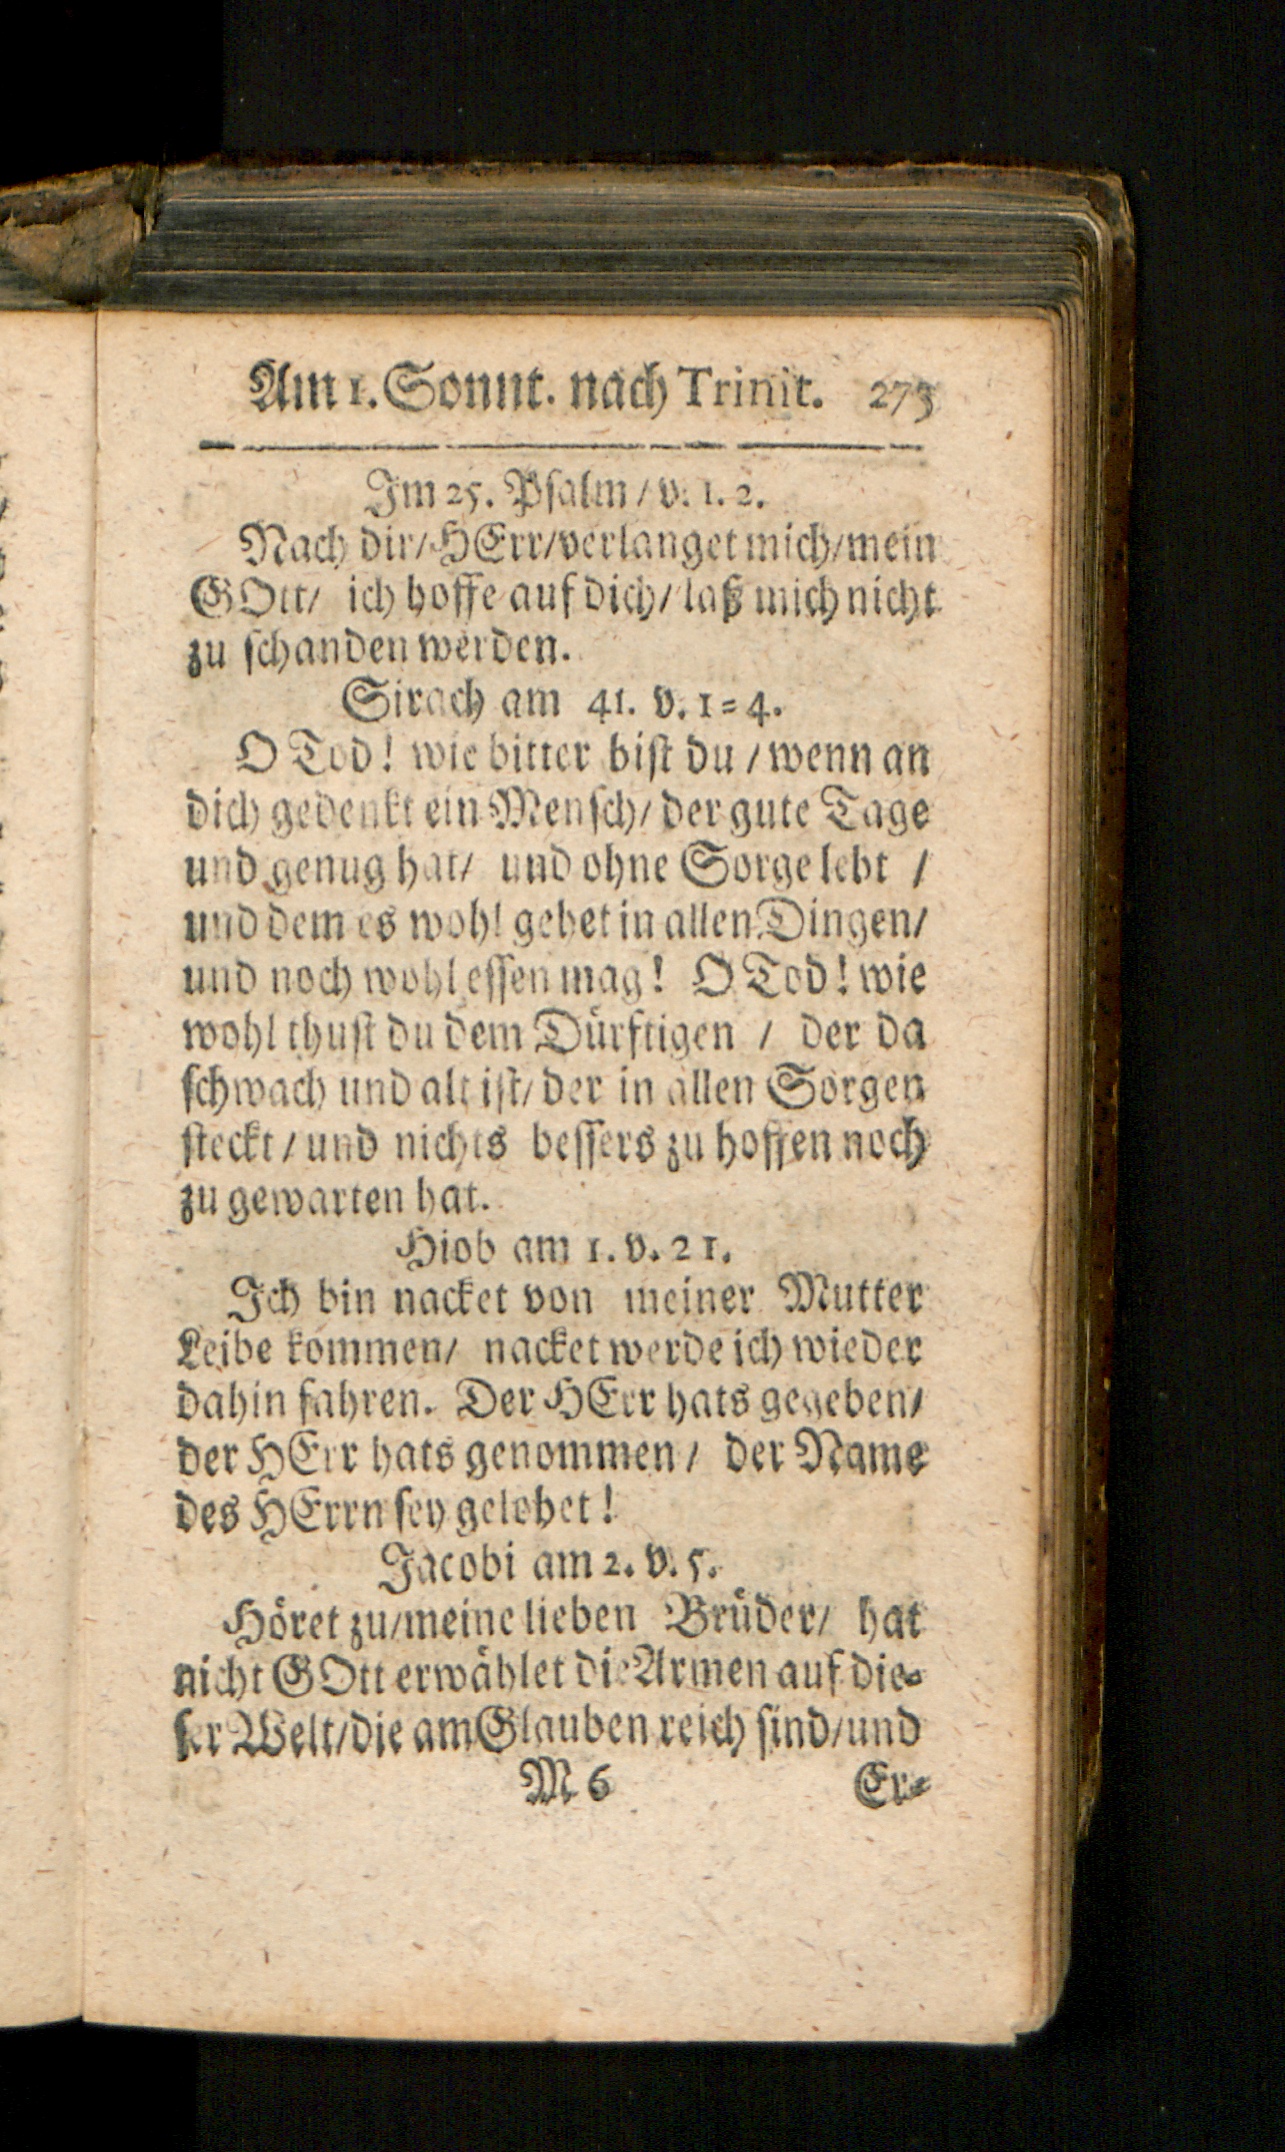 Am 1. Sonnt. nach Trinit. 273
Im 25. Psalm / v. 1. 2.
Nach dir / HErr / verlanget mich / mein
GOtt / ich hoffe auf dich / laß mich nicht
zu schanden werden.
Sirach am 41. v. 1=4.
O Tod! wie bitter bist du / wenn an
dich gedenkt ein Mensch / der gute Tage
und genug hat / und ohne Sorge lebt /
und dem es wohl gehet in allen Dingen /
und noch wohl essen mag! O Tod! wie
wohl thust du dem Dürftigen / der da
schwach und alt ist / der in allen Sorgen
steckt / und nichts bessers zu hoffen noch
zu gewarten hat.
Hiob am 1. v. 21.
Ich bin nacket von meiner Mutter
Leibe kommen / nacket werde ich wieder
dahin fahren. Der HErr hats gegeben /
der HErr hats genommen / der Name
des HErrn sey gelobet!
Jacobi am 2. v. 5.
Höret zu / meine lieben Brüder / hat
nicht GOtt erwählet die Armen auf die=
ser Welt / die am Glauben reich sind / und
M 6 Er=